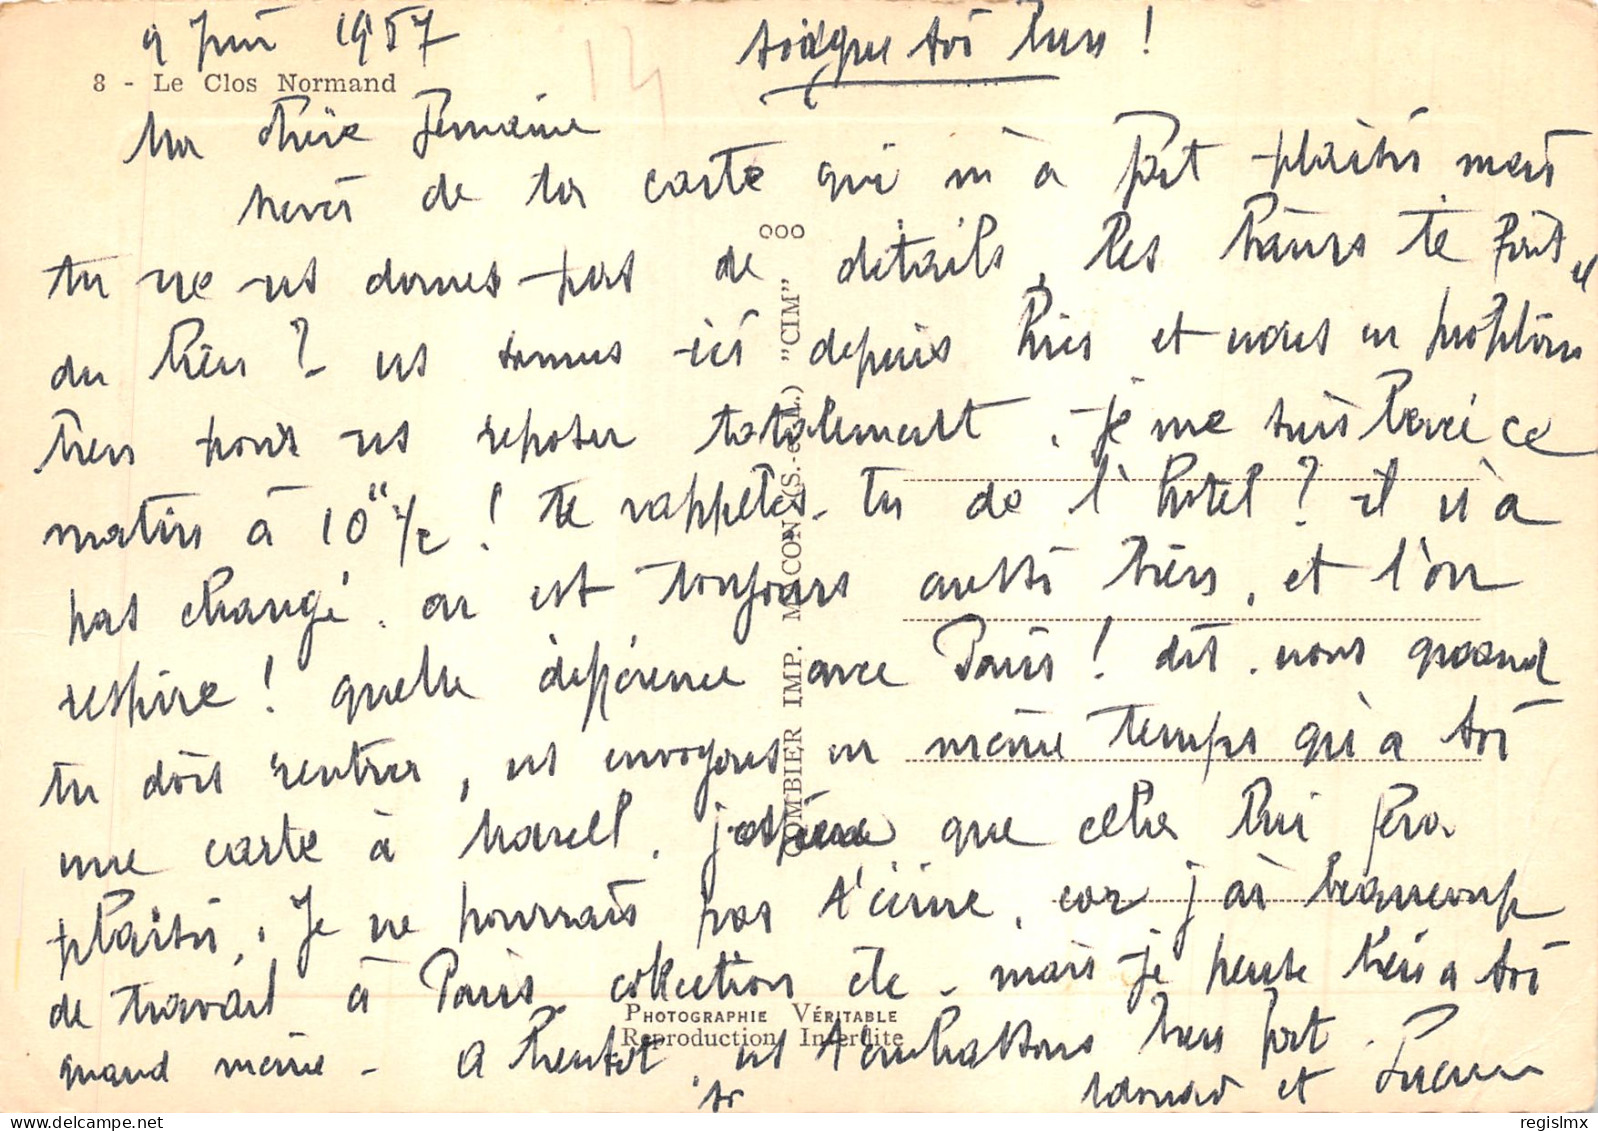 9 Juin 1957
soigne toi bien !
8 - Le Clos Normand
Ma chère Germaine
Merci de ta carte qui m'a fait plaisir mais
tu ne ns donnes pas de détails, les bains te font il
du bien ? ns sommes ici depuis hier et nous en profitons
bien pour ns reposer totalement. je me suis levé ce
matin à 10" 1/2 ! te rappelles-tu de l'hôtel ? il n'a
pas changé. on est toujours aussi bien, et l'on
respire ! quelle différence avec Paris ! dis-nous quand
tu dois rentrer, ns envoyons en même temps qu'à toi
une carte à Marcel. j'espère que cela lui fera
plaisir. Je ne pourrais pas t'écrire, car j'ai beaucoup
de travail à Paris. collection etc - mais je pense bien à toi
quand même - A bientôt ns t'embrassons bien fort.
Edouard et
COMBIER IMP. MACON (S.-et-L.) "CIM"
PHOTOGRAPHIE VÉRITABLE
Reproduction Interdite
regislmx